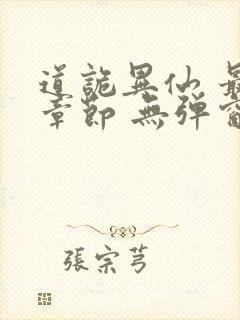 道詭異仙 最
章節 無彈窗
張宗芎